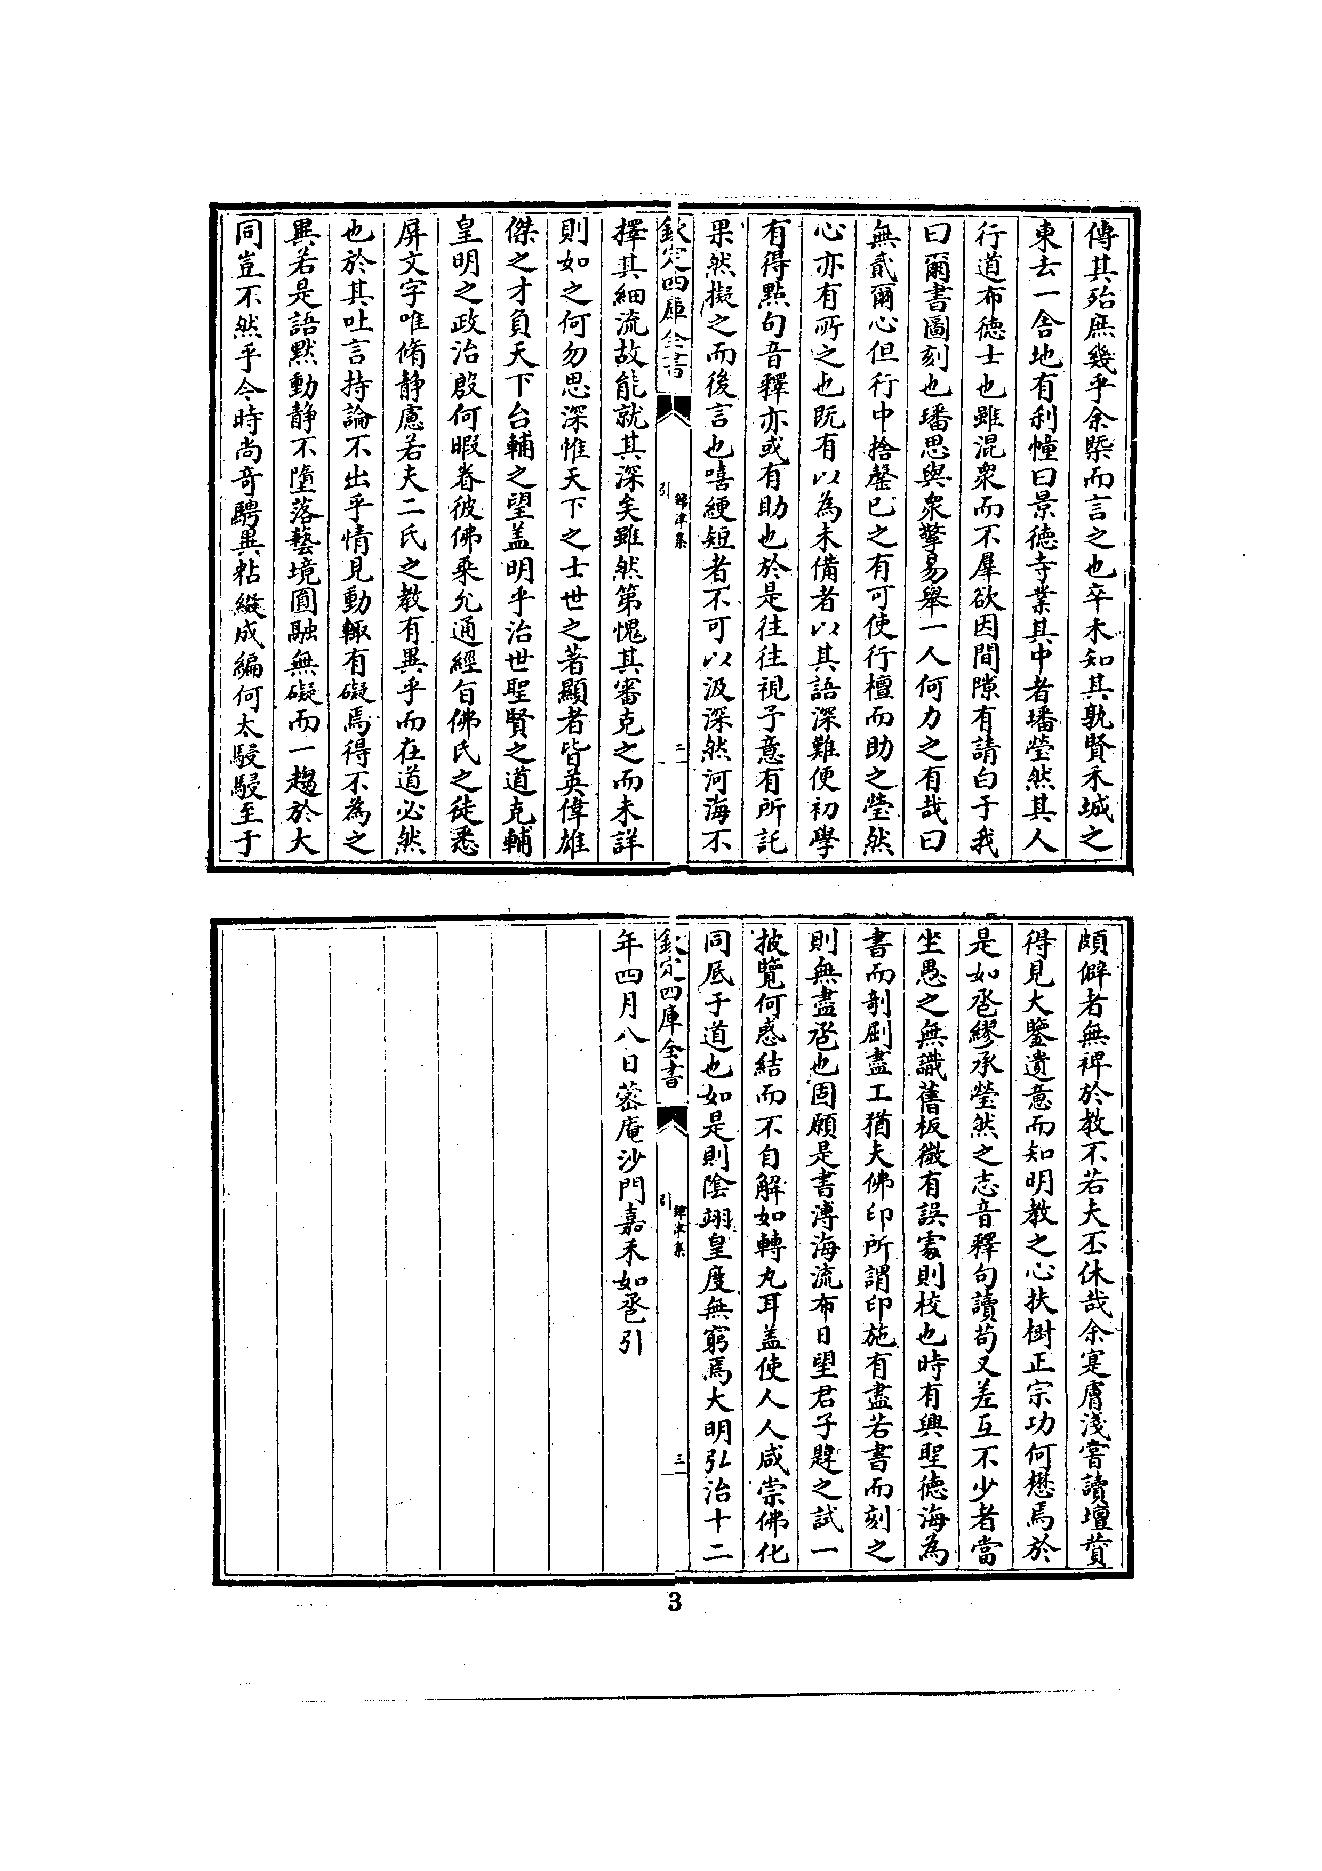 傳其殆庶幾乎余槩而言之也卒未知其孰賢禾城之
東去一舍地有利幢曰景德寺業其中者璠瑩然其人
行道布德士也雖混衆而不羣欲因間隙有請白于我
曰爾書圖刻也璠思與衆擎易舉一人何力之有哉曰
無貳爾心但行中捨罄已之有可使行檀而助之瑩然
心亦有所之也既有以為未備者以其語深難便初學
有得㸃句音釋亦或有助也於是往往視予意有所託
果然擬之而後言也嘻綆短者不可以汲深然河海不
欽定四庫全書
鐔津集
引
三
擇其細流故能就其深矣雖然第愧其審克之而未詳
則如之何勿思深惟天下之士世之著顯者皆英偉雄
傑之才負天下台輔之望盖明乎治世聖賢之道克輔
皇明之政治殷何暇眷彼佛乘允通經旨佛氏之徒悉
屏文字唯脩静慮若夫二氏之教有異乎而在道必然
也於其吐言持論不出乎情見動輙有礙焉得不為之
異若是語黙動静不墮落藝境圓融無礙而一趨於大
同豈不然乎今時尚竒騁異粘縱成編何太駸駸至于
頗僻者無裨於教不若夫丕休哉余寔膚淺甞讀壇賛
得見大鑒遺意而知明教之心扶樹正宗功何懋焉於
是如卺繆承瑩然之志音釋句讀茍又差互不少者當
坐愚之無識舊板微有誤處則校也時有興聖德海為
書而剞劂盡工猶夫佛印所謂印施有盡若書而刻之
則無盡卺也固願是書溥海流布日望君子韙之試一
披覽何惑結而不自解如轉丸耳盖使人人咸崇佛化
同底于道也如是則隂翊皇度無窮焉大明弘治十二
欽定四庫全書
鐔津集
引
三
年四月八日蓉庵沙門嘉禾如卺引
3